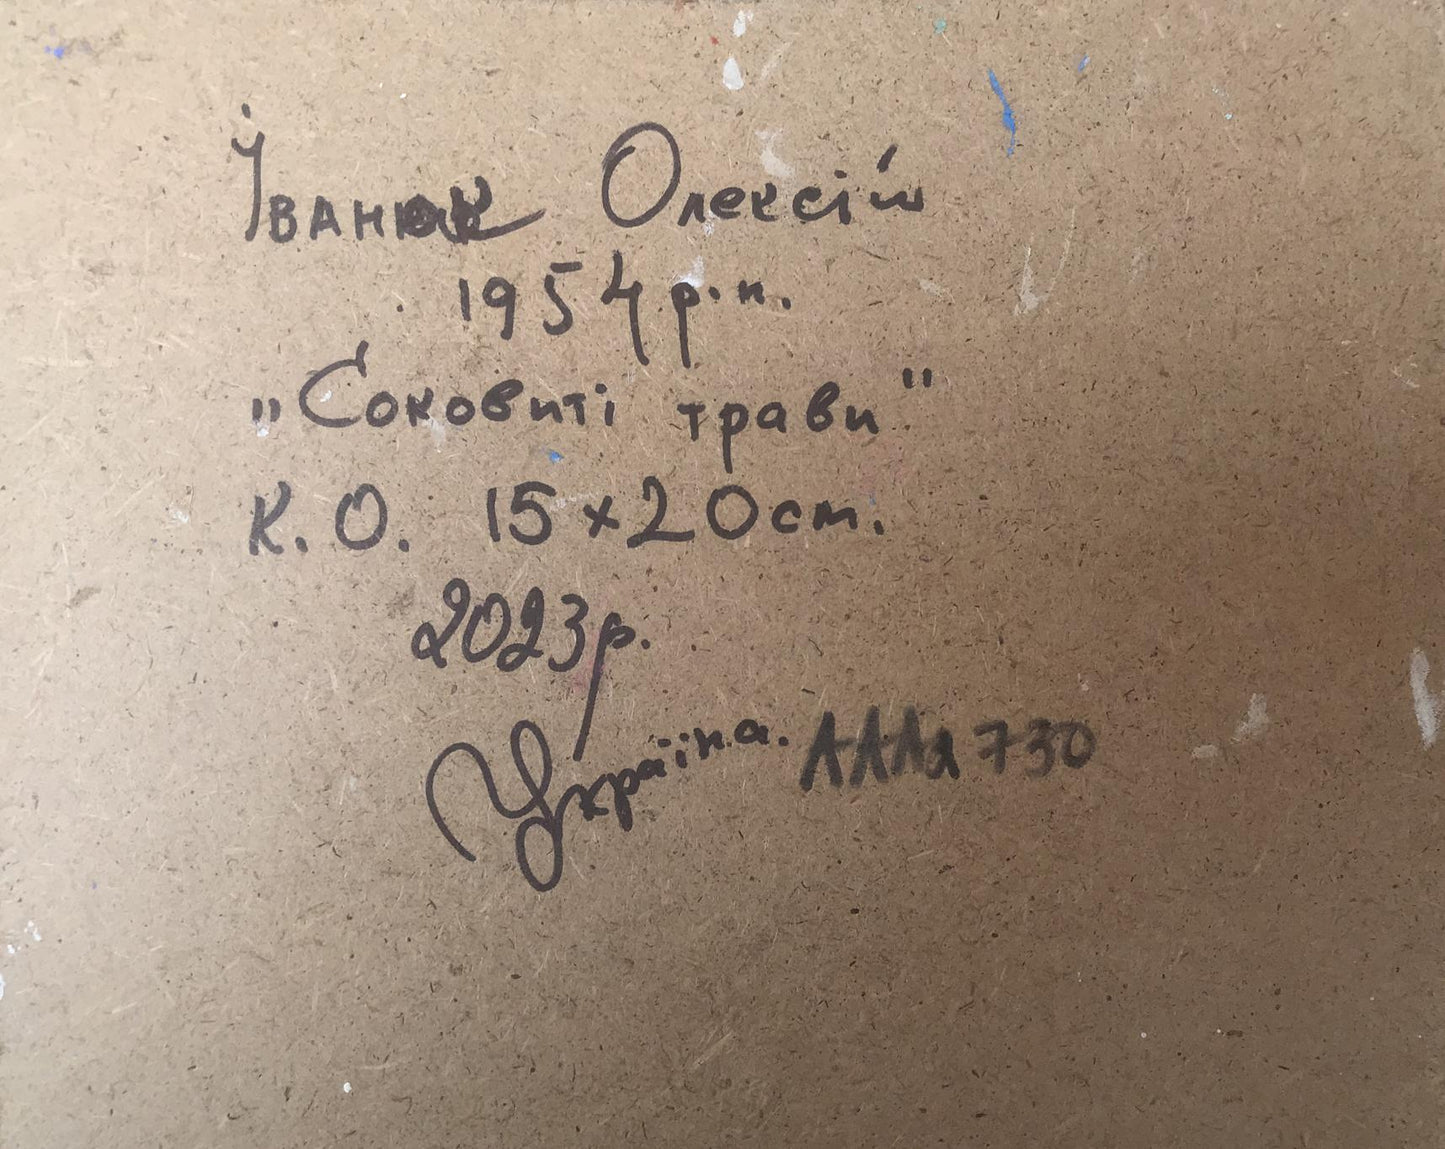 Іванюк Олексій
1954 р.н.
"Соковиті трави"
К.О. 15 x 20 см.
2023 р.
Україна. 730